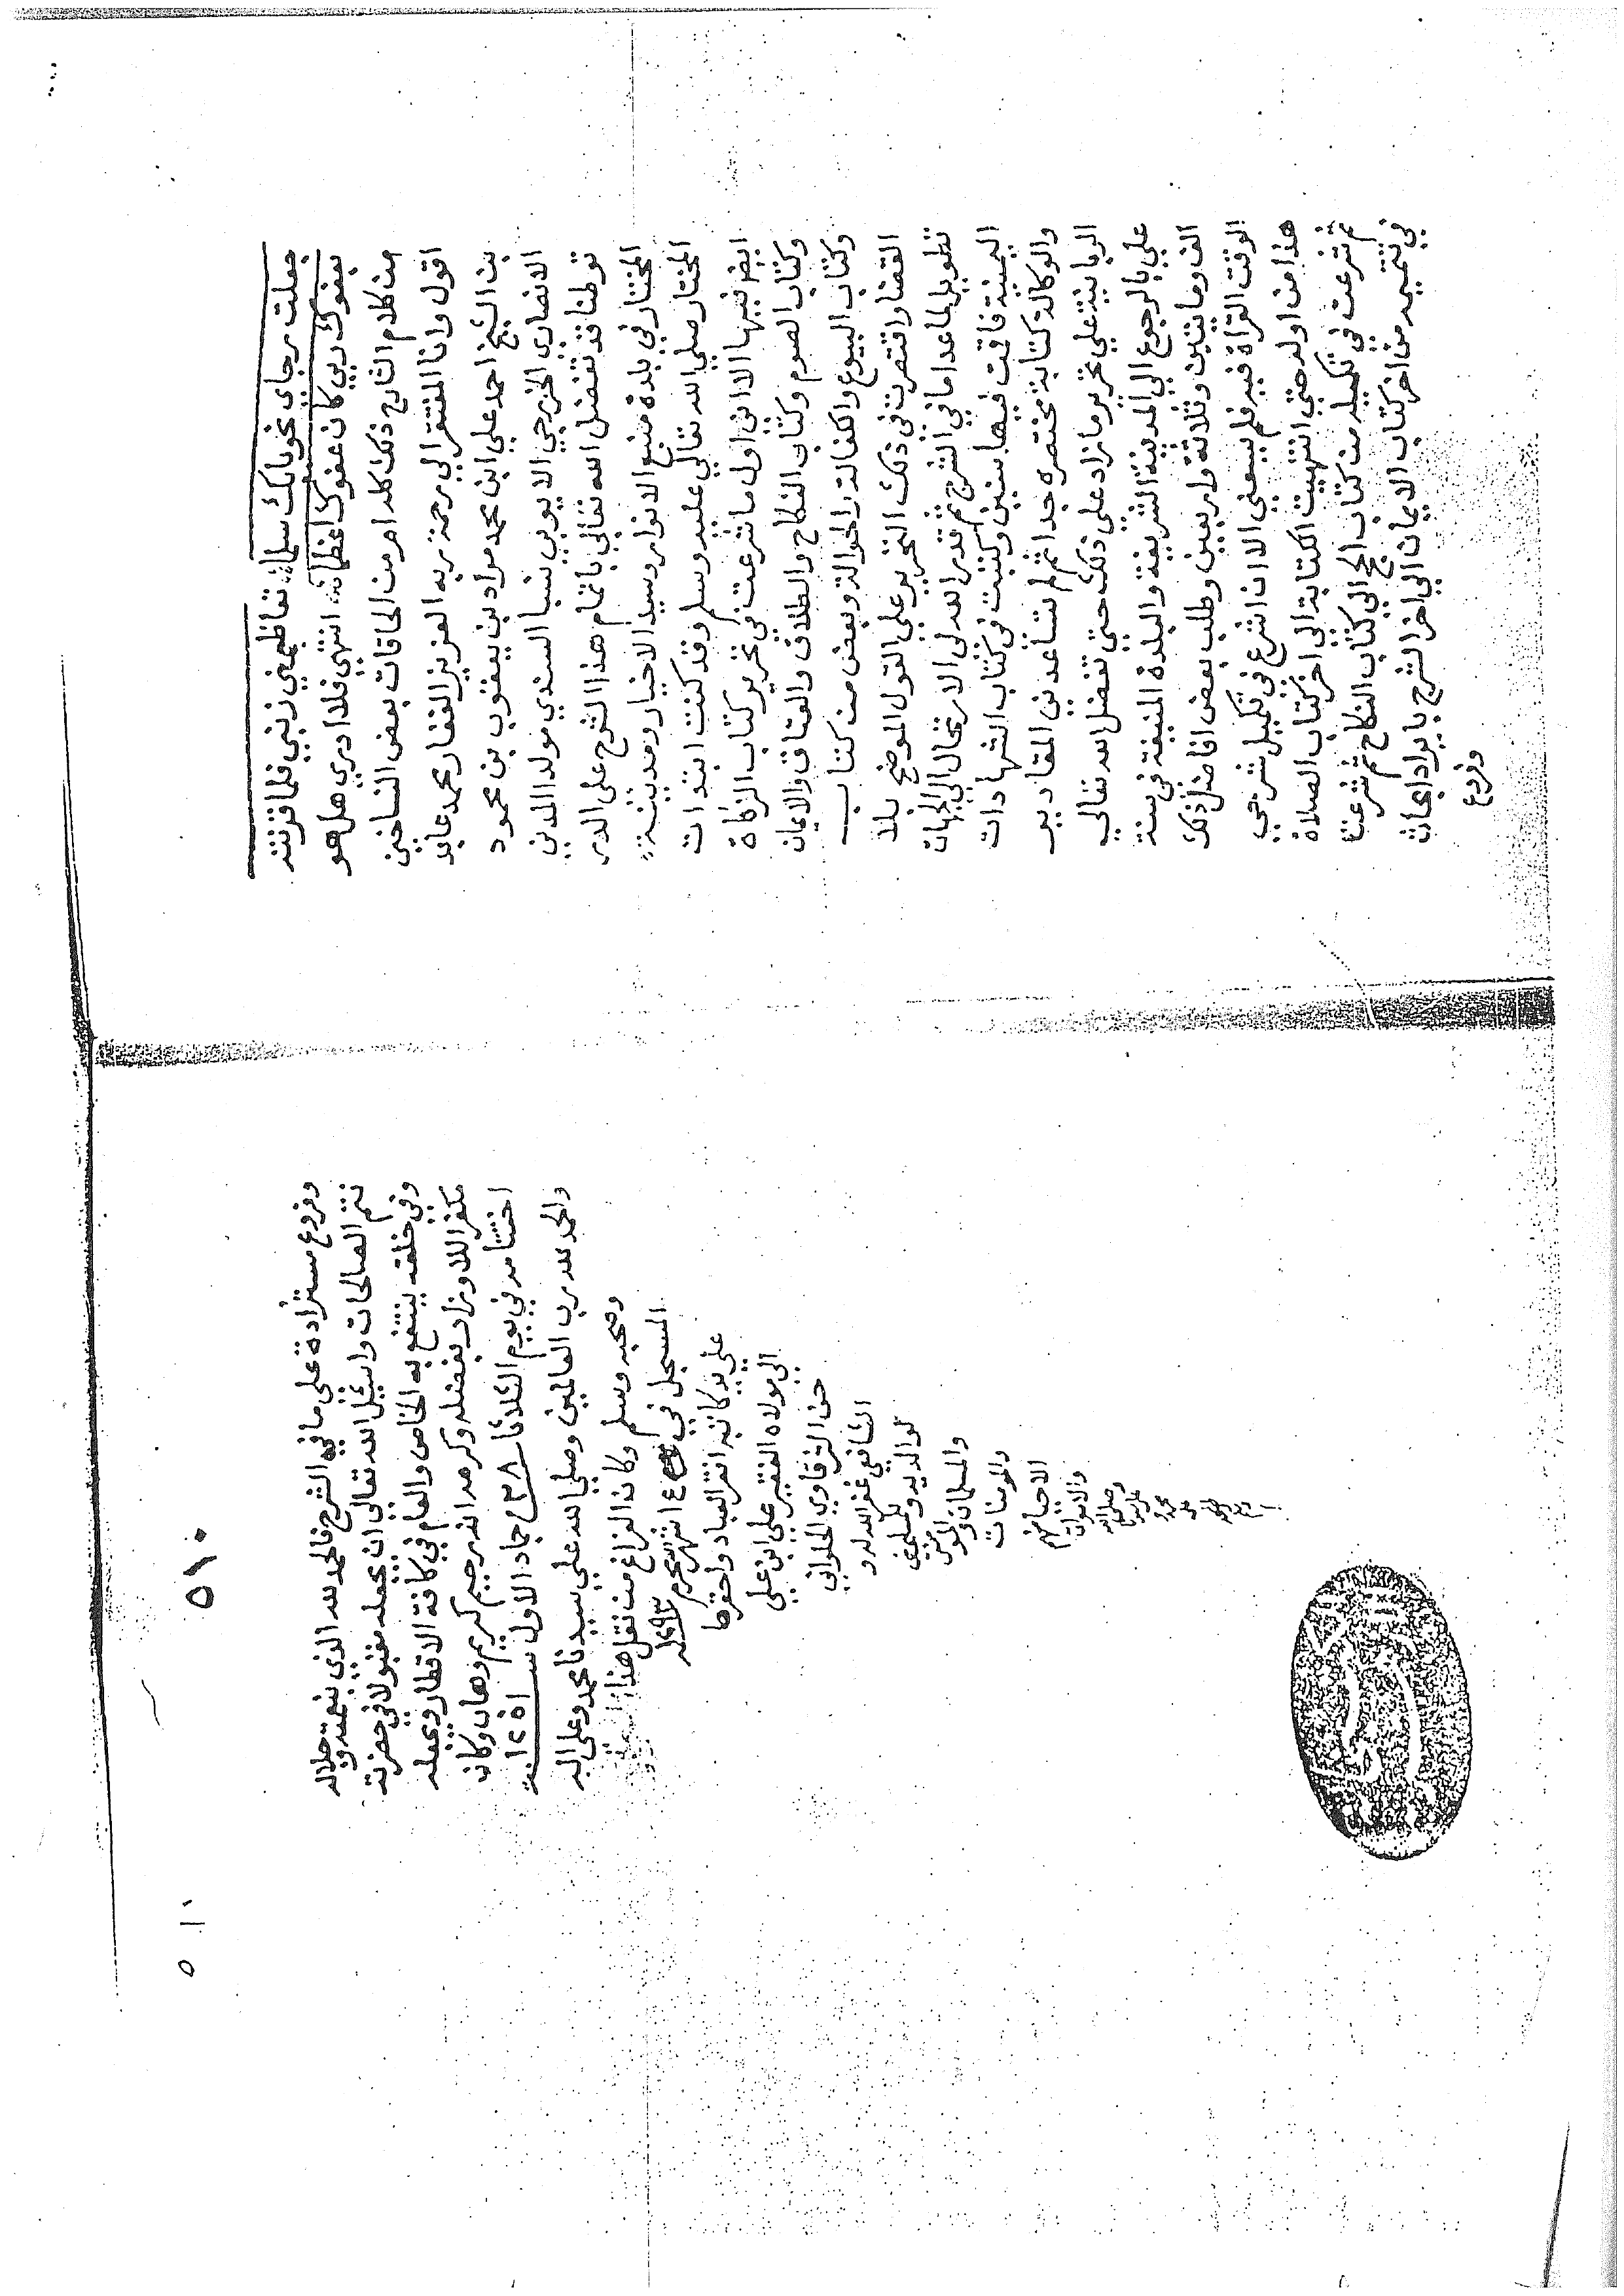 جعلت رجاى نحو بابك سلما؞ تعاظمنى ذنبي فلما قرنته
بعفوك ربي كان عفوك اعظما؞ انتهى فلا ادري هل هو
من كلام الشارح ذلك كله ام من الحاقات بعض الناسخين
اقول وانا المفتقر الي رحمة ربه العزيز الغفار محمد عابد
بن الشيخ احمد علي ابن محمد مراد بن يعقوب بن محمود
الانصارى الخزرجي الايوبي نسبا السندي مولدا المدني
توطنا قد تفضل الله تعالى باتمام هذا الشرح على الدر
المختار في بلدة منبع الانوار وسيد الاخيار ومدينة
المختار صلي الله تعالي عليه وسلم وقد كنت ابتدات
ابضر نبيها الا انى اول ما شرعت فى تحرير كتاب الزكاة
وكتاب الصوم وكتاب النكاح والطلاق والعتاق والايمان
وكتاب البيوع والكفالة والحوالة وبعض من كتاب
القضا واقتصرت فى ذلك التحرير على القول الموضح بلا
تطويل لما عدا ما في الشرح ثم قدر الله لى الارتحال الى الجهات
اليمينة فاقمت فيها سنين وكتبت فى كتاب الشهادات
والوكالة كتابة مختصرة جدا ثم لم تساعدنى المقادير
الربانية علي تحرير ما زاد علي ذلك حتي تفضل الله تعالي
علي بالرجوع الي المدينة الشريفة والبلدة المنيفة فى سنة
الف ومائتين وثلاثة واربعين وطلب بعض افاضل ذلك
الوقت القرأة فيه فلم يسعني الا ان اشرع فى تكميل شرحي
هذا من اوله حتي انتهيت الكتابة الى اخر كتاب الصلاة
ثم شرعت في تكميله من كتاب الحج الي كتاب النكاح ثم شرعت
في تتميمه من اخر كتاب الايمان الي اخر الشرح بايراد ابحاث
وفروع
٥١٠
٥١٠
وفروع مستزادة على ما في الشرح فالحمد لله الذي بنعمته وجلاله
تتم الصالحات واسئل الله تعالي ان يجعله مقبولا في حضرته
وفي خلقه ينتفع به الخاص والعام في كافة الاقطار ويجعله
مكفرا للاوزار بفضله وكرمه انه رحيم كريم وهاب وكان
اختتامه في يوم الثلاثا ٢٨ جماد الاول سنة ١٢٥١
والحمد لله رب العالمين وصلي الله علي سيدنا محمد وعلى اله
وصحبه وسلم وكان الفراغ من نقل هذا
المسجل في ٤ شهر محرم
علي يد كاتبه افقر العباد واحقرها
الى مولاه الفقير علي ابن علي
حسن الشرقاوي الحلواني
الشافعي غفر الله له و
لوالديه وللمسلمين
والمسلمات والمومنين
والمومنات
الاحيا منهم
والاموات
وصلى الله